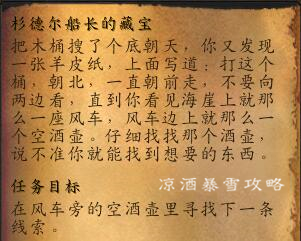 杉德尔船长的藏宝
把木桶搜了个底朝天，你又发现
一张羊皮纸，上面写道：打这个
桶，朝北，一直朝前走，不要向
两边看，直到你看见海崖上就那
么一座风车，风车边上就那么一
个空酒壶。仔细找找那个酒壶，
说不准你就能找到想要的东西。
凉酒暴雪攻略
任务目标
在风车旁的空酒壶里寻找下一条
线索。